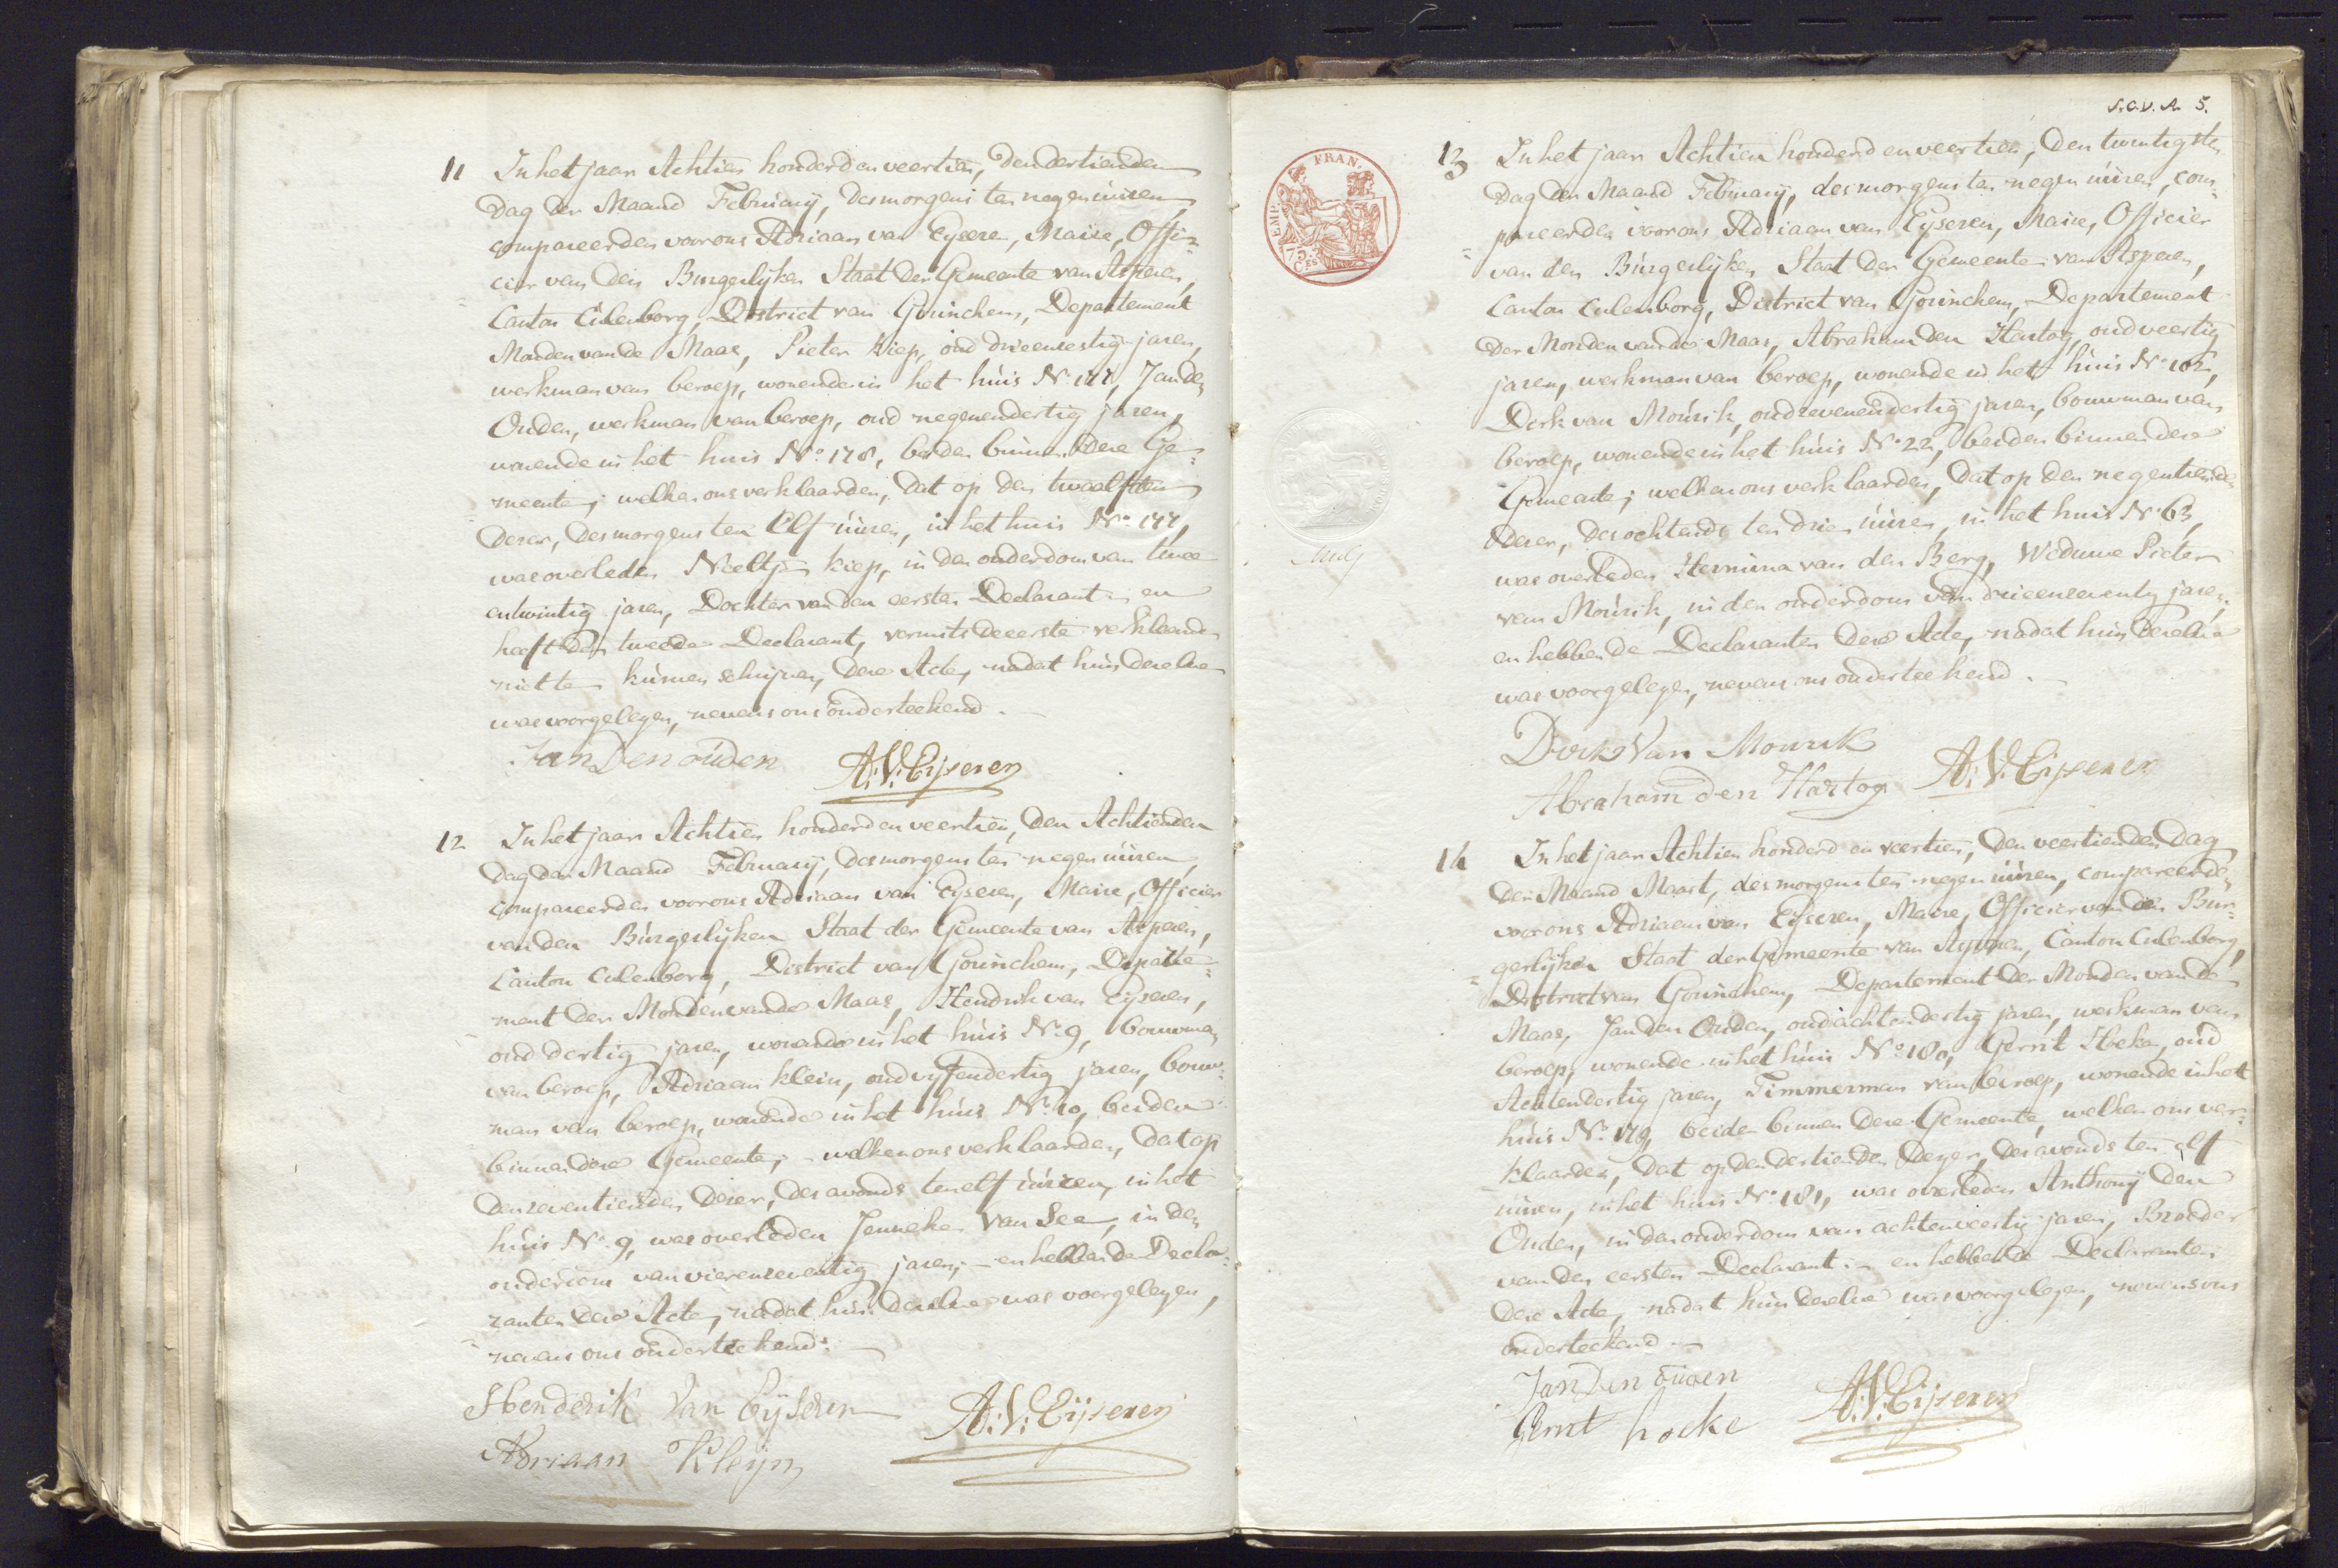 11 In het jaar Achtien honderd en veertien, den dertienden
dag der Maand February, des morgens ten negen uùren,
compareerden voor ons Adriaan van Eyseren, Maire, Offi=
cier van den Burgerlijken Staat der Gemeente van Asperen,
Canton Culenborg, District van Gorinchem, Departement
Monden van de Maas, Pieter Kiep, oud drieenzestig jaren,
werkman van beroep, wonende in het huis No. 177, Jan den
Ouden, werkman van beroep, oud negenendertig jaren,
wonende in het huis No. 178, beiden binnen deze Ge=
meente; welken ons verklaarden, dat op den twaalfden
dezer, des morgens ten Elf uùren, in het huis No. 177,
was overleden Neeltje Kiep, in den ouderdom van twee
entwintig jaren, Dochter van den eersten Declarant en
heeft den tweede Declarant, vermits de eerste verklaarde
niet te kùnnen schrijven, deze Acte, nadat hùn dezelve
was voorgelezen, nevens ons onderteekend.
Jan Den oùden A.V. Eijseren
12 In het jaar Achtien honderd en veertien, den Achtienden
dag der Maand February, des morgens ten negen uùren,
compareerden voor ons Adriaan van Eyseren, Maire, Officier
van den Bùrgerlijken Staat der Gemeente van Asperen,
Canton Culenborg, District van Gorinchem, Departe=
ment der Monden van de Maas, Hendrik van Eyseren,
oud dertig jaren, wonende in het hùis No. 9, bouwman
van beroep, Adriaan Klein, oud vyfendertig jaren, bouw=
man van beroep, wonende in het hùis No. 10, beiden
binnen deze Gemeente; welken ons verklaarden, dat op
den zeventienden dezer, des avonds ten elf uùren, in het
hùis No. 9, was overleden Jenneke van See, in den
ouderdom van vierenzeventig jaren; en hebben de Decla=
ranten deze Acte, nadat hùn dezelve was voorgelezen,
nevens ons onderteekend.
Henderik Van Eijseren A.V. Eijseren
Adriaan Kleijn
S.A.V.A. 5.
EMP. FRAN.
75 CES
13 In het jaar Achtien honderd en veertien, den twintigsten
dag der Maand February, des morgens ten negen uùren, com=
pareerden voor ons Adriaan van Eyseren, Maire, Officier
van den Bùrgerlijken Staat der Gemeente van Asperen,
Canton Culenborg, District van Gorinchem, Departement
der Monden van de Maas, Abraham den Hartog, oud veertig
jaren, werkman van beroep, wonende in het hùis No. 102,
Derk van Moùrik, oud zevenendertig jaren, bouwman van
beroep, wonende in het hùis No. 22, beiden binnen deze
Gemeente; welken ons verklaarden, dat op den negentienden
dezer, des ochtends ten drie uùren, in het hùis No. 63,
was overleden Hermina van den Berg, Weduwe Pieter
van Moùrik, in den ouderdom van drieenzeventig jaren,
en hebben de Declaranten deze Acte, nadat hùn dezelve
was voorgelezen, nevens ons onderteekend.
Dirk Van Mourik
Abraham den Hartog A.V. Eijseren
14 In het jaar Achtien honderd en veertien, den veertienden dag
der Maand Maart, des morgens ten negen uùren, compareerden
voor ons Adriaan van Eyseren, Maire, Officier van den Bur=
gerlijken Staat der Gemeente van Asperen, Canton Culenborg,
District van Gorinchem, Departement der Monden van de
Maas, Jan den Ouden, oud achtendertig jaren, werkman van
beroep, wonende in het hùis No. 180, Gerrit Hoeke, oud
Achtendertig jaren, Timmerman van beroep, wonende in het
hùis No. 179, beide binnen deze Gemeente, welken ons ver=
klaarden, dat op den dertienden dezer, des avonds ten elf
uùren, in het huis No. 181, was overleden Anthony den
Ouden, in den ouderdom van achtenveertig jaren, Broeder
van den eersten Declarant; en hebben de Declaranten
deze Acte, nadat hùn dezelve was voorgelezen, nevens ons
onderteekend.
Jan Den oùden
Gerrit hoeke A.V. Eijseren